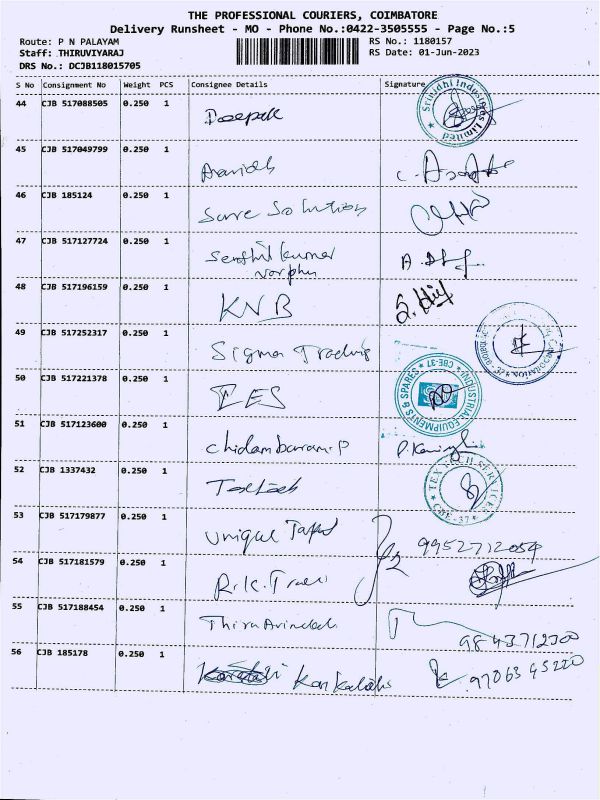 THE PROFESSIONAL COURIERS, COIMBATORE
Delivery Runsheet - MO - Phone No.:0422-3505555 - Page No.:5
Route: P N PALAYAM RS No.: 1180157
Staff: THIRUVIYARAJ RS Date: 01-Jun-2023
DRS No.: DCJB118015705
S No Consignment No Weight PCS Consignee Details Signature
44 CJB 517088505 0.250 1 Deepak Srinidhi Industries Limited
45 CJB 517049799 0.250 1
46 CJB 185124 0.250 1 Sure Solution
47 CJB 517127724 0.250 1 Senthil kumar
48 CJB 517196159 0.250 1 KNB
49 CJB 517252317 0.250 1 Sigma Trading
50 CJB 517221378 0.250 1 EES INDUSTRIAL EQUIPMENTS & SPARES CBE-37
51 CJB 517123600 0.250 1 Chidambaram.P
52 CJB 1337432 0.250 1 TEX TECH SERVICES CBE-37
53 CJB 517179877 0.250 1 Unique 9952712054
54 CJB 517181579 0.250 1 R.K.
55 CJB 517188454 0.250 1 9843712300
56 CJB 185178 0.250 1